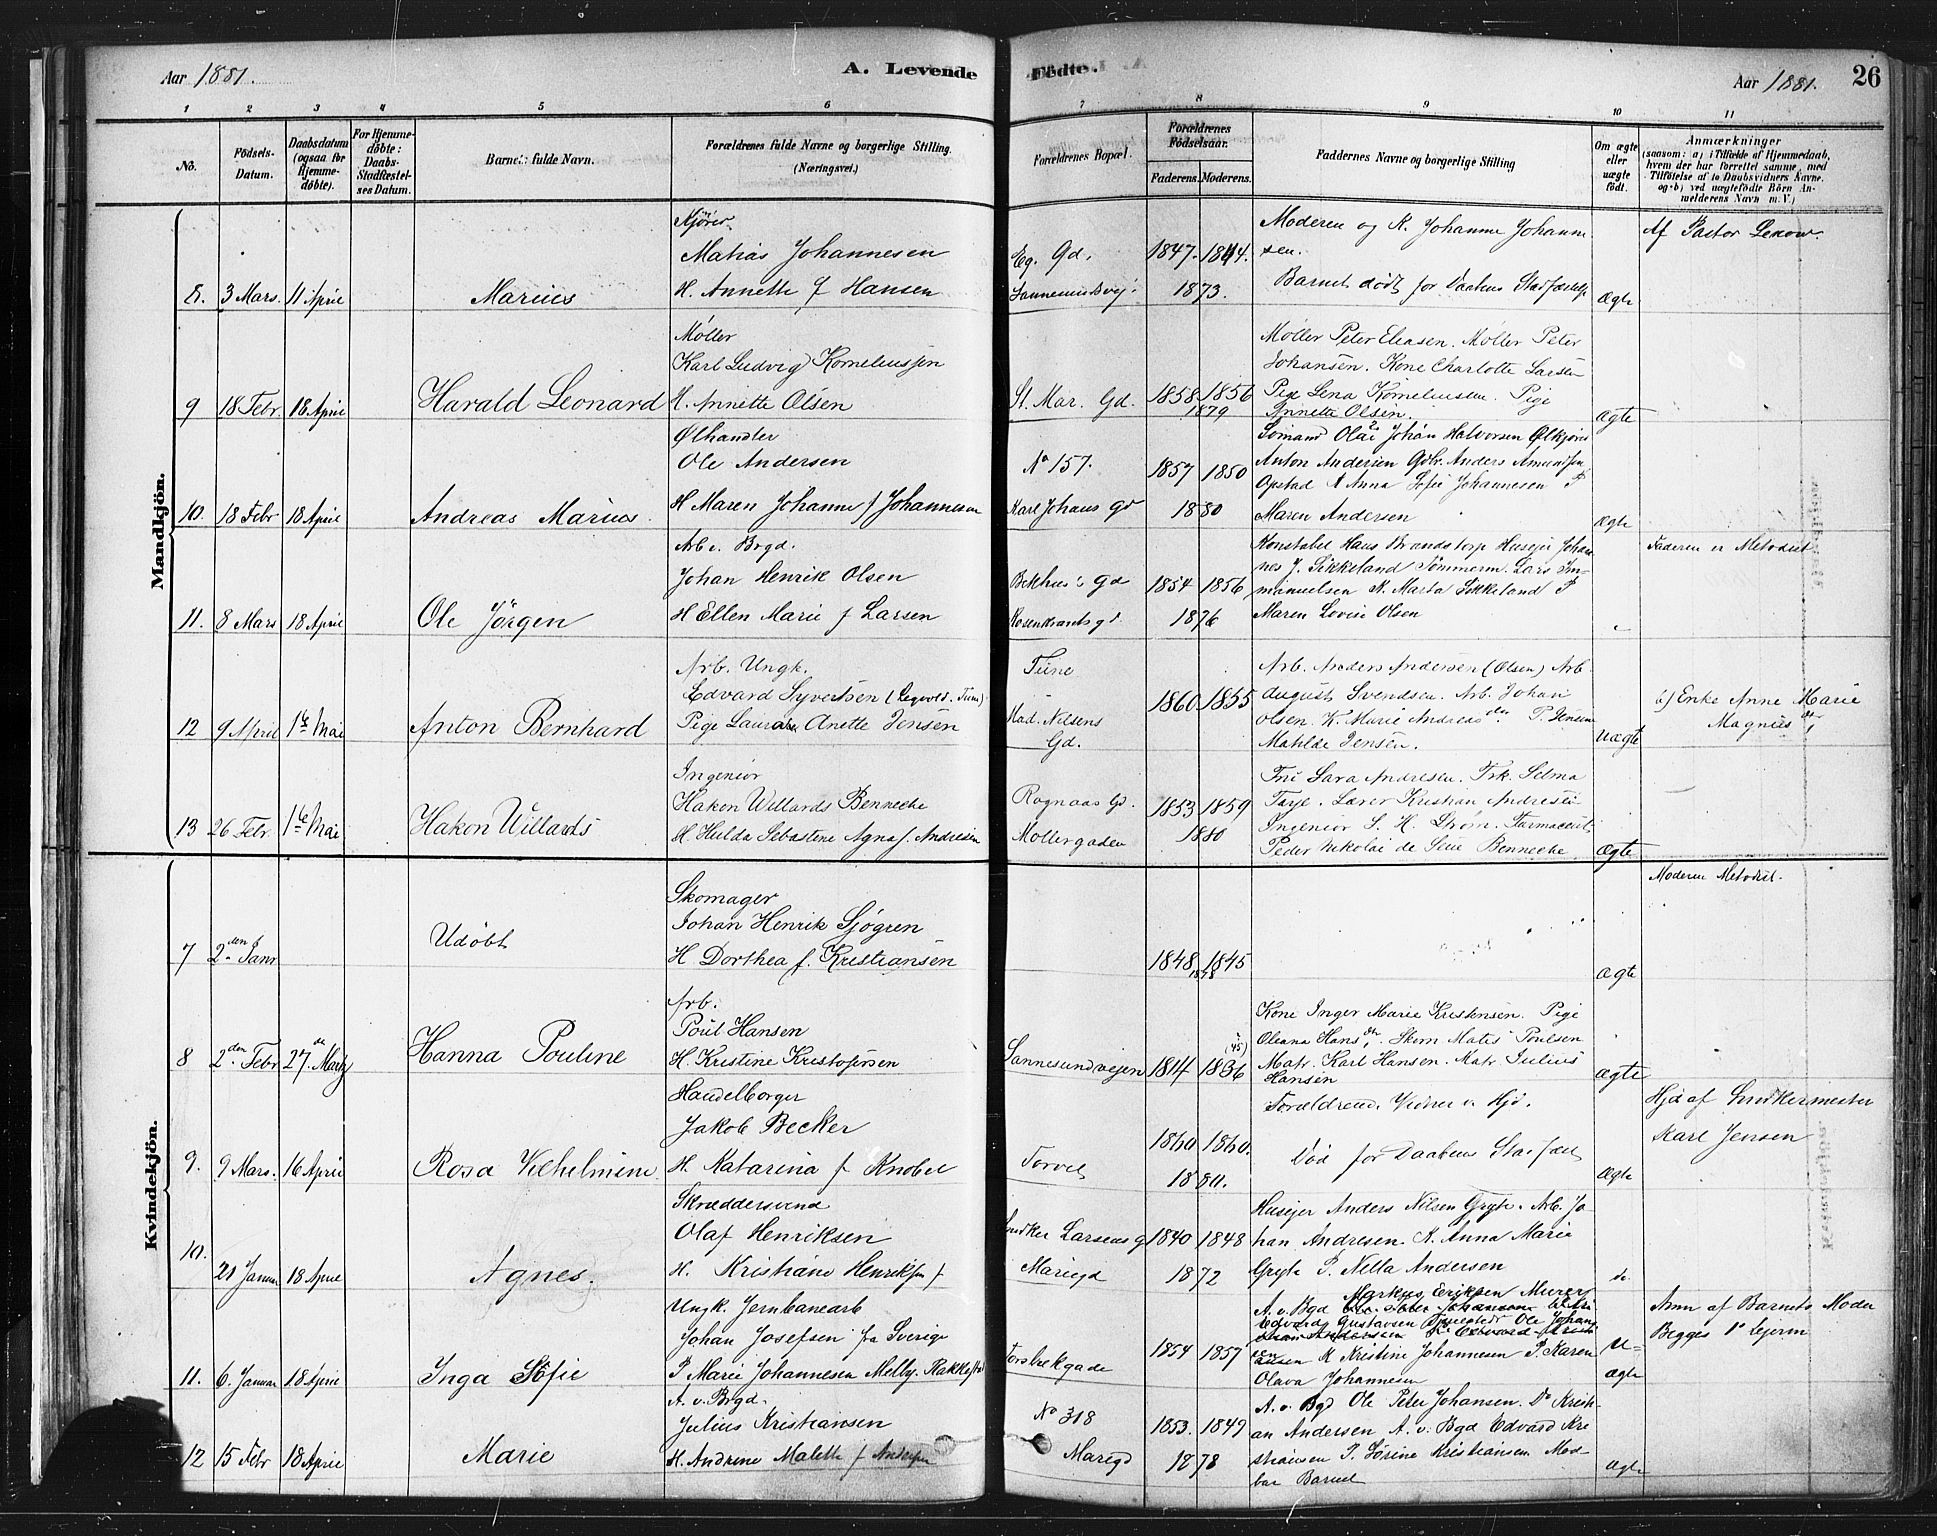 Aar 1881.
A. Levende
Födte.
Aar 1881.
26
1 2 3 4 5 6 7 8 9 10 11
No.
Födsels-Datum.
Daabsdatum (ogsaa for Hjemme-döbte).
For Hjemme-döbte: Daabs-Stadfæstel-ses Datum.
Barnets fulde Navn.
Forældrenes fulde Navne og borgerlige Stilling. (Næringsvei.)
Forældrenes Bopæl.
Forældrenes Födselsaar.
Faderens. Moderens.
Faddernes Navne og borgerlige Stilling
Om ægte eller uægte födt.
Anmærkninger
(saasom: a) i Tilfælde af Hjemmedaab, hvem der har forrettet samme, med Tilföielse af to Daabsvidners Navne. og b) ved uægtefödte Börn An-melderens Navn m. V.)
Mandkjön.
8. 3 Mars. 11 April
Marius
Kjører
Matias Johannesen
H. Annette f Hansen
Eg. Gd.
Sannesundsvej.
1847. 1844.
1873.
Moderen og K. Johanne Johanne
sen.
Barnet dödt før Daabens Stadfæstelse
Ægte
Af Pastor Lexow.
9 18 Febr. 18 April
Harald Leonard
Møller
Karl Ludvig Korneliussen
H. Annette Olsen
St. Mar. Gd.
1858 1856
1879
Møller Peter Eliasen. Møller Peter
Johansen. Kone Charlotte Larsen
Pige Lena Korneliussen. Pige
Annette Olsen.
Ægte
10. 18 Febr 18 April
Andreas Marius.
Ølhandler
Ole Andersen
H Maren Johanne f Johannesen
No 157.
Karl Johans gd
1857 1850
1880
Sömand Olai Johan Halvorsen Ølkjörer
Anton Andersen Gdbr. Anders Amundsen
Opstad K Anna Sofie Johannesen P
Maren Andersen
Ægte
11. 8 Mars 18 April
Ole Jörgen
Arb v. Brgd.
Johan Henrik Olsen
H Ellen Marie f Larsen
Bekhus's Gd
Rosenkrants gd.
1854 1856
1876
Konstabel Hans Brandstorp Husejer Johan
nes J. Sikkeland Tömmerm. Lars Im-
manuelsen K. Marta Sikkeland P
Maren Lovise Olsen
Faderen er Metodist
12 9 April 1ste Mai
Anton Bernhard
Arb. Ungk.
Edvard Syvertsen
Pige Laura Anette Jensen
Tune
Mad. Nilsens
Gd.
1860 1855
Arb. Anders Andersen (Olsen) Arb.
August Svendsen. Arb. Johan
Olsen. K. Marie Andreasden P. Jensine
Matilde Jensen.
Uægte
b) Enke Anne Marie
Magnusdtr
13 26 Febr. 1ste Mai
Hakon Willards
Ingeniør
Hakon Willards Benneche
H. Hulda Sebastine Agna f. Andresen
Rognaas Gd.
Møllergaden
1853 1859
1880
Fru Sara Andresen. Frk. Selma
Taxe. Lærer Kristian Andresen
Ingeniør S. H. Strøm. Farmaceut
Peder Nikolai de Seue Benneche
Ægte
Kvindekjön.
7 2den Janr
Udöbt
Skomager
Johan Henrik Sjøgren
H Dorthea f. Kristiansen
1848 1845
1878
Ægte
Moderen Metodist.
8 2den Febr 27de Marts
Hanna Pouline
Arb.
Poul Hansen
H. Kristine Kristofersen
Sannesundvejen
1844 1836
(45)
Kone Inger Marie Kristensen. Pige
Oleana Hansdtr. Skom. Matis Poulsen
Matr. Karl Hansen. Matr. Julius
Hansen
Ægte
9. 9 Mars. 16 April
Rosa Vilhelmine
Handelborger
Jakob Becker
H. Katarina f Knobel
Torvet
1860 1860.
1880.
Forældrene. Vidner v. Hjd.
Död før Daabens Stadfæst
Ægte
Hjd af Snedkermester
Karl Jensen
10. 21 Januar 18 April
Agnes.
Skræddersvend
Olaf Henriksen
H. Kristiane Henriksen f
Snedker Larsens g
Mariegd
1840 1848
1872
Husejer Anders Nilsen Gryte. Arb. Jo
han Andresen. K. Anna Marie
Gryte P. Netta Andersen
do
11. 6 Januar 18 April
Inga Sofie
Ungk. Jernbanearb
Johan Josefsen fra Sverige
P Marie Johannesen Melby. Rakkestad
Torsbekgade
1854 1857
Markus Eriksen Murer
A. v. Bgd
K Kristine Johannesen P. Karen
Olava Johannesen
U-
ægte
Anm af Barnets Moder
Begges 1ste Lejerm
12 15 Febr 18 April
Marie
A. v. Brgd.
Julius Kristiansen
H. Andrine Malette f Andersen
No 318
Mariegd
1853. 1849
1878
A. v. Bgd Ole Peter Johansen. Do Kristi
an Andersen A. v. Bgd Edvard Kri
stiansen P. Sörine Kristiansen Mod-
bar Barnet
Ægte